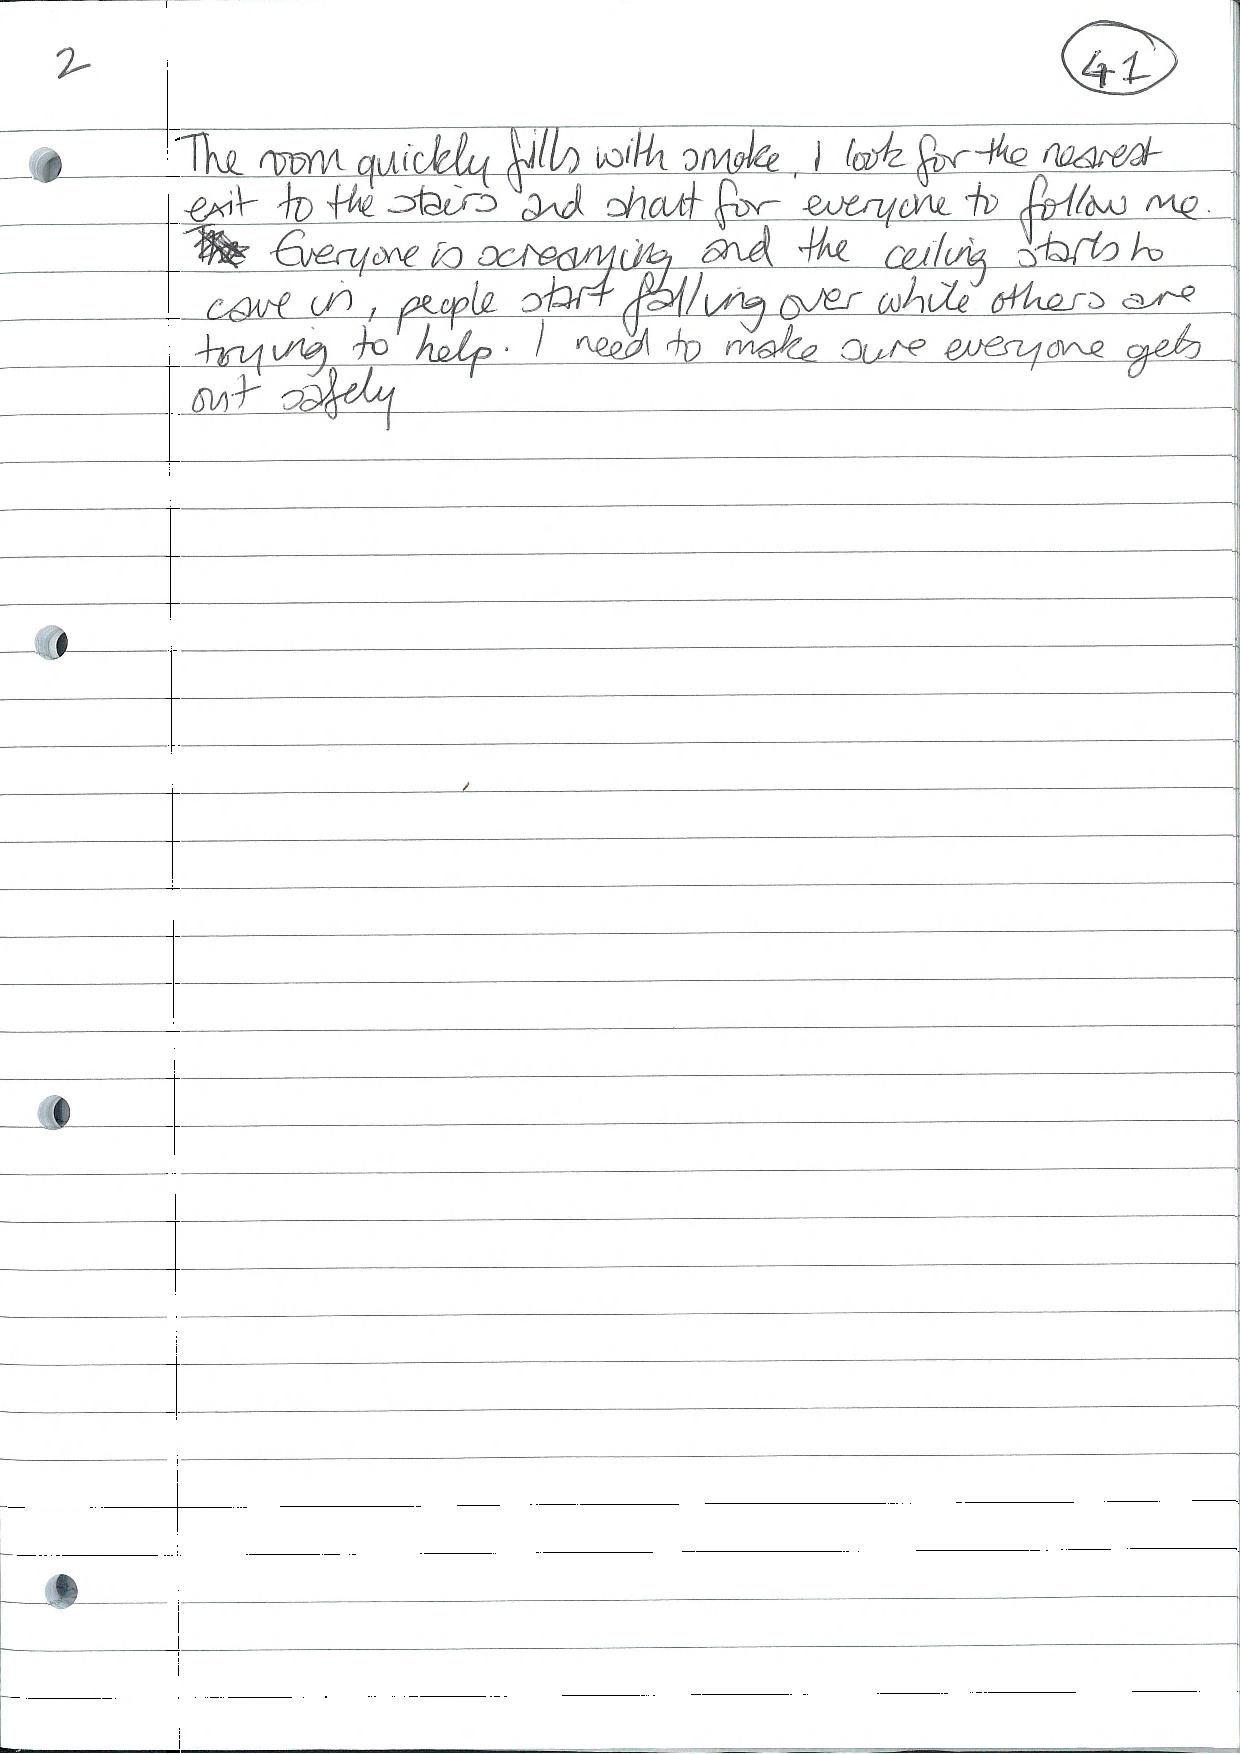 2
41
The room quickly fills with smoke, I look for the nearest
exit to the stairs and shout for everyone to follow me.
Everyone is screaming and the ceiling starts to
cave in, people start falling over while others are
trying to help. I need to make sure everyone gets
out safely